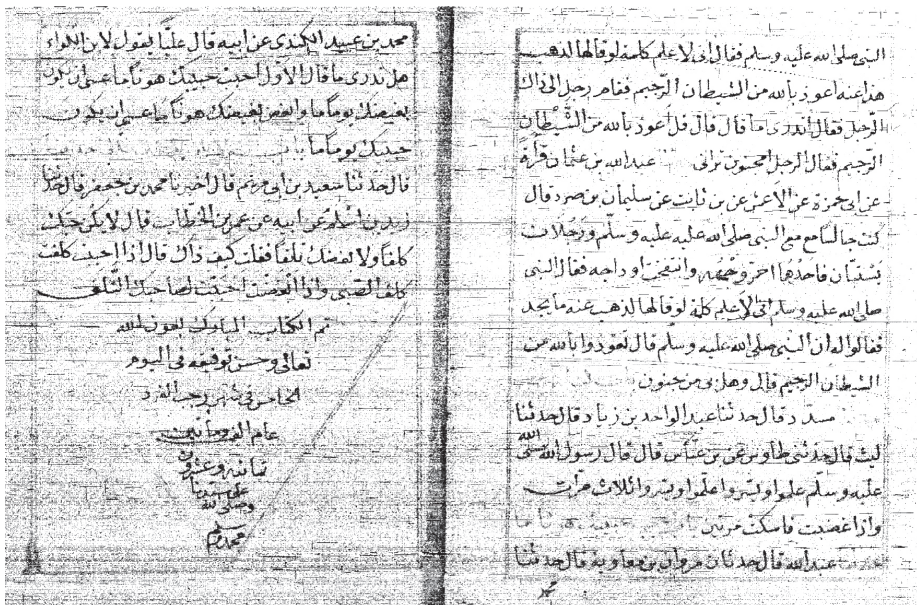 النبي صلى الله عليه وسلم فقال اني لاعلم كلمة لوقالها لذهب
هذا عنه اعوذ بالله من الشيطان الرجيم فقام رجل الى ذاك
الرجل فقال اتدرى ما قال قال قل اعوذ بالله من الشيطان
الرجيم فقال الرجل امجنون ترانى عبد الله بن عثمان قرأة
عن ابى حمزة عن الاعمش عن بن ثابت عن سليمان بن صرد قال
كنت جالسا مع النبى صلى الله عليه عليه وسلم ورجلان
يستبان فاحدهما احمر وجهه وانتفخت اوداجه فقال النبى
صلى الله عليه وسلم انى لاعلم كلمة لوقالها لذهب عنه ما يجد
فقالوا له ان النبى صلى الله عليه وسلم قال تعوذ وابالله من
الشيطان الرجيم قال وهل بى من جنون
مسدد قال حدثنا عبد الواحد بن زياد قال حدثنا
ليث قال حدثنى طاوس عن بن عباس قال قال رسول الله صلى
عليه وسلم علموا ويسروا علموا ويسروا ثلاث مرات
واذا غضبت فاسكت مرتين
عبد الله قال حدثنا مروان بن معاوية قال حدثنا
محمد بن عبيد الكندى عن ابيه قال عليا يقول لابن الكواء
هل تدرى ما قال الاول احبب حبيبك هونا ما عسى ان يكون
بغيضك يوما ما وابغض بغيضك هونا ما عسى ان يكون
حبيبك يوما ما
قال حدثنا سعيد بن ابى مريم قال اخبرنا محمد بن جعفر قال حدثنا
زيد بن اسلم عن ابيه عن عمر بن الخطاب قال لا يكن حبك
كلفا ولا بغضك تلفا فقلت كيف ذاك قال اذا احببت كلفت
كلف الصبى واذا ابغضت احببت لصاحبك التلف
تم الكتاب المبارك بعون الله
تعالى وحسن توفيقه فى اليوم
الخامس فى شهر رجب الفرد
عام الف ومأتين
ثمانية وعشرون
على سيدنا
وصلى الله
محمد وسلم